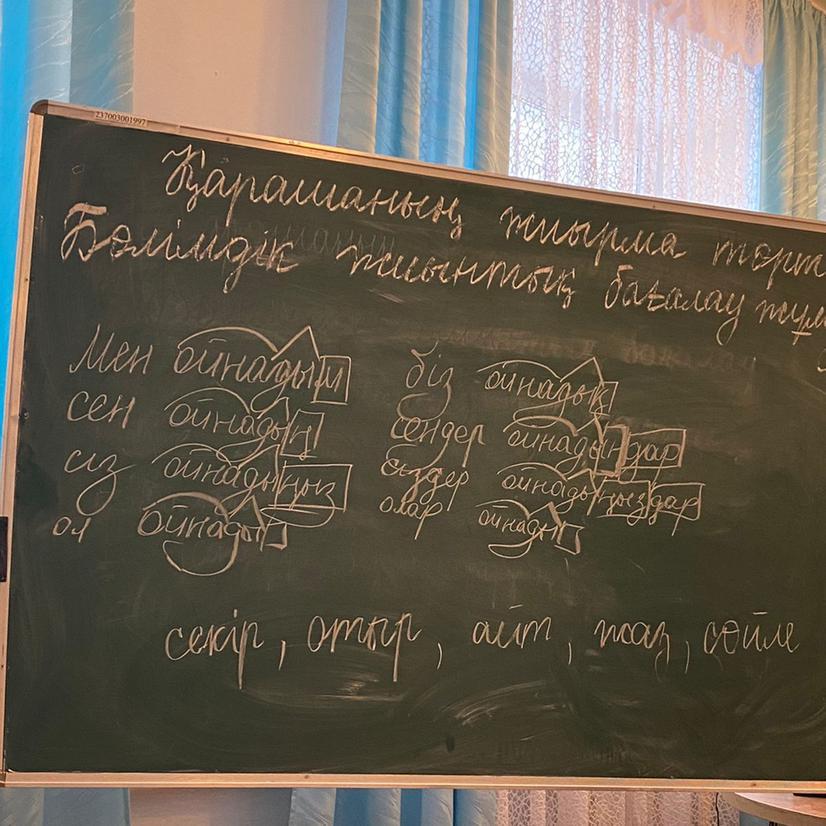 237003001997
Қарашаның жиырма төрт
Бөлімдік жиынтық бағалау жұм
Мен ойнадым біз ойнадық
сен ойнадың сендер ойнадыңдар
сіз ойнадыңыз сіздер ойнадыңыздар
ол ойнады олар ойнады
секір, отыр, айт, жаз, сөйле